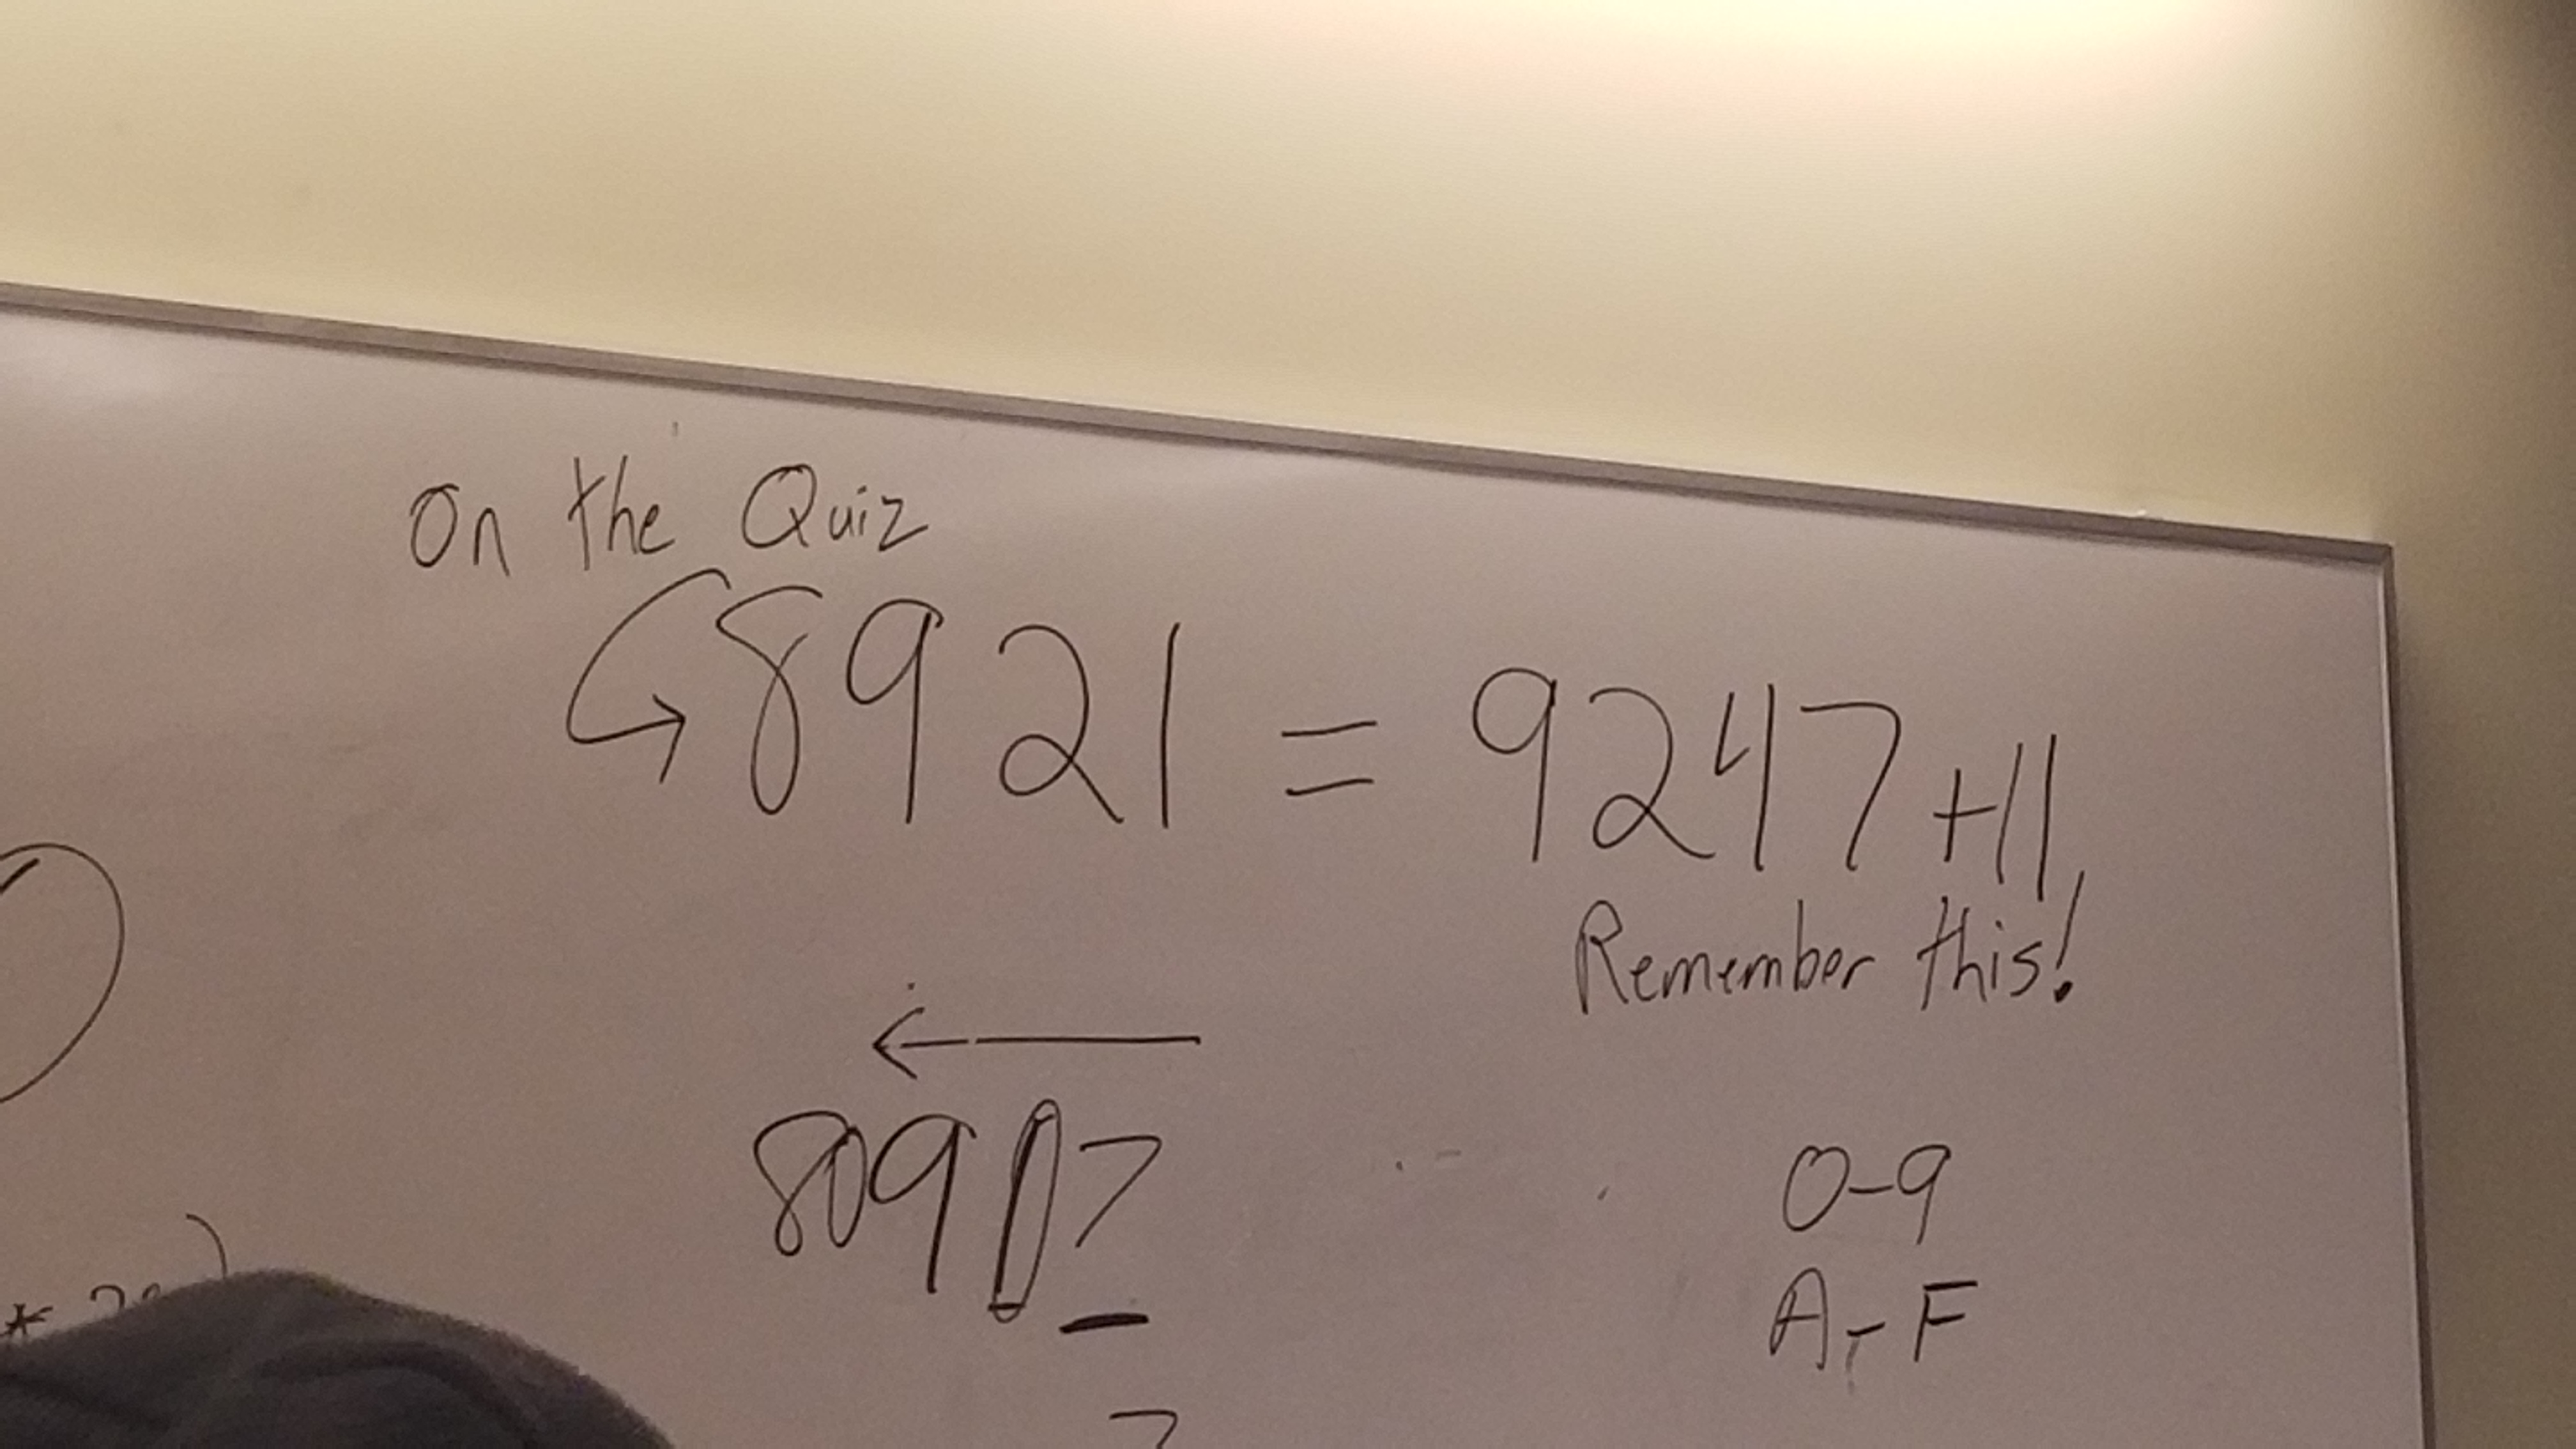 On the Quiz
8921 = 9247 +11
Remember this!
←
0-9
A-F